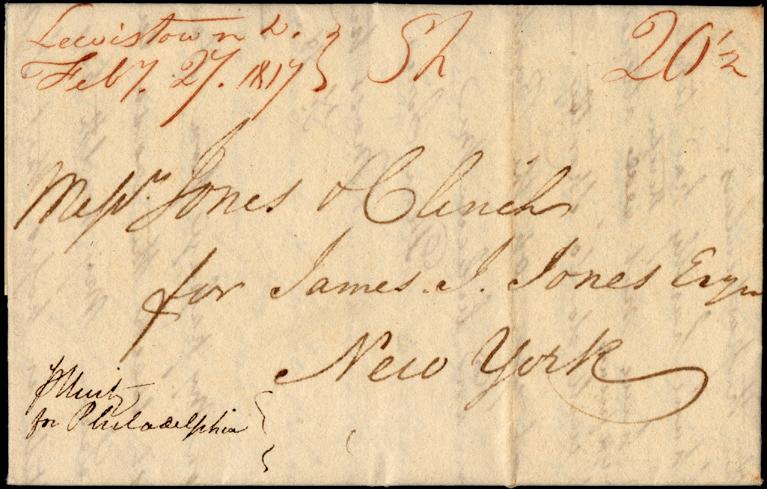 Lewistown D. } Sh 20 1/2
Feby. 27. 1817
Messrs. Jones & Clinch
for James. I. Jones Esqr
New York
for Philadelphia